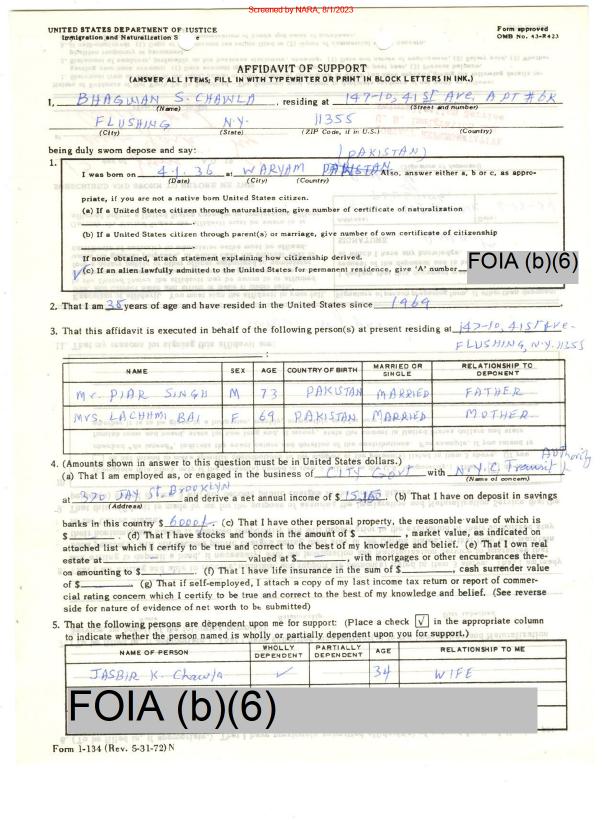 Screened by NARA, 8/1/2023
UNITED STATES DEPARTMENT OF JUSTICE
Immigration and Naturalization S e
Form approved
OMB No. 43-R423
AFFIDAVIT OF SUPPORT
(ANSWER ALL ITEMS; FILL IN WITH TYPEWRITER OR PRINT IN BLOCK LETTERS IN INK.)
I, BHAGWAN S. CHAWLA, residing at 147-10, 41st Ave, APT #6K
(Name) (Street and number)
FLUSHING N.Y. 11355
(City) (State) (ZIP Code, if in U.S.) (Country)
being duly sworn depose and say:
(PAKISTAN)
1.
I was born on 4.1.36 at WARYAM PAKISTAN Also, answer either a, b or c, as appro-
(Date) (City) (Country)
priate, if you are not a native born United States citizen.
(a) If a United States citizen through naturalization, give number of certificate of naturalization
(b) If a United States citizen through parent(s) or marriage, give number of own certificate of citizenship
If none obtained, attach statement explaining how citizenship derived.
(c) If an alien lawfully admitted to the United States for permanent residence, give 'A' number FOIA (b)(6)
2. That I am 38 years of age and have resided in the United States since 1969.
3. That this affidavit is executed in behalf of the following person(s) at present residing at 147-10, 41st Ave-
FLUSHING, N.Y. 11355
NAME SEX AGE COUNTRY OF BIRTH MARRIED OR SINGLE RELATIONSHIP TO DEPONENT
Mr. PIAR SINGH M 73 PAKISTAN MARRIED FATHER
MRS. LACHHMI BAI F 69 PAKISTAN MARRIED MOTHER
4. (Amounts shown in answer to this question must be in United States dollars.)
Authority
(a) That I am employed as, or engaged in the business of CITY Govt with N.Y.C. Transit
(Name of concern)
at 370 JAY St. BROOKLYN and derive a net annual income of $ 15,160. (b) That I have on deposit in savings
(Address)
banks in this country $ 6000/-. (c) That I have other personal property, the reasonable value of which is
$ . (d) That I have stocks and bonds in the amount of $ , market value, as indicated on
attached list which I certify to be true and correct to the best of my knowledge and belief. (e) That I own real
estate at valued at $ , with mortgages or other encumbrances there-
on amounting to $ . (f) That I have life insurance in the sum of $ , cash surrender value
of $ . (g) That if self-employed, I attach a copy of my last income tax return or report of commer-
cial rating concern which I certify to be true and correct to the best of my knowledge and belief. (See reverse
side for nature of evidence of net worth to be submitted)
5. That the following persons are dependent upon me for support: (Place a check √ in the appropriate column
to indicate whether the person named is wholly or partially dependent upon you for support.)
NAME OF PERSON WHOLLY DEPENDENT PARTIALLY DEPENDENT AGE RELATIONSHIP TO ME
JASBIR K. Chawla ✓ 34 WIFE
FOIA (b)(6)
Form I-134 (Rev. 5-31-72) N